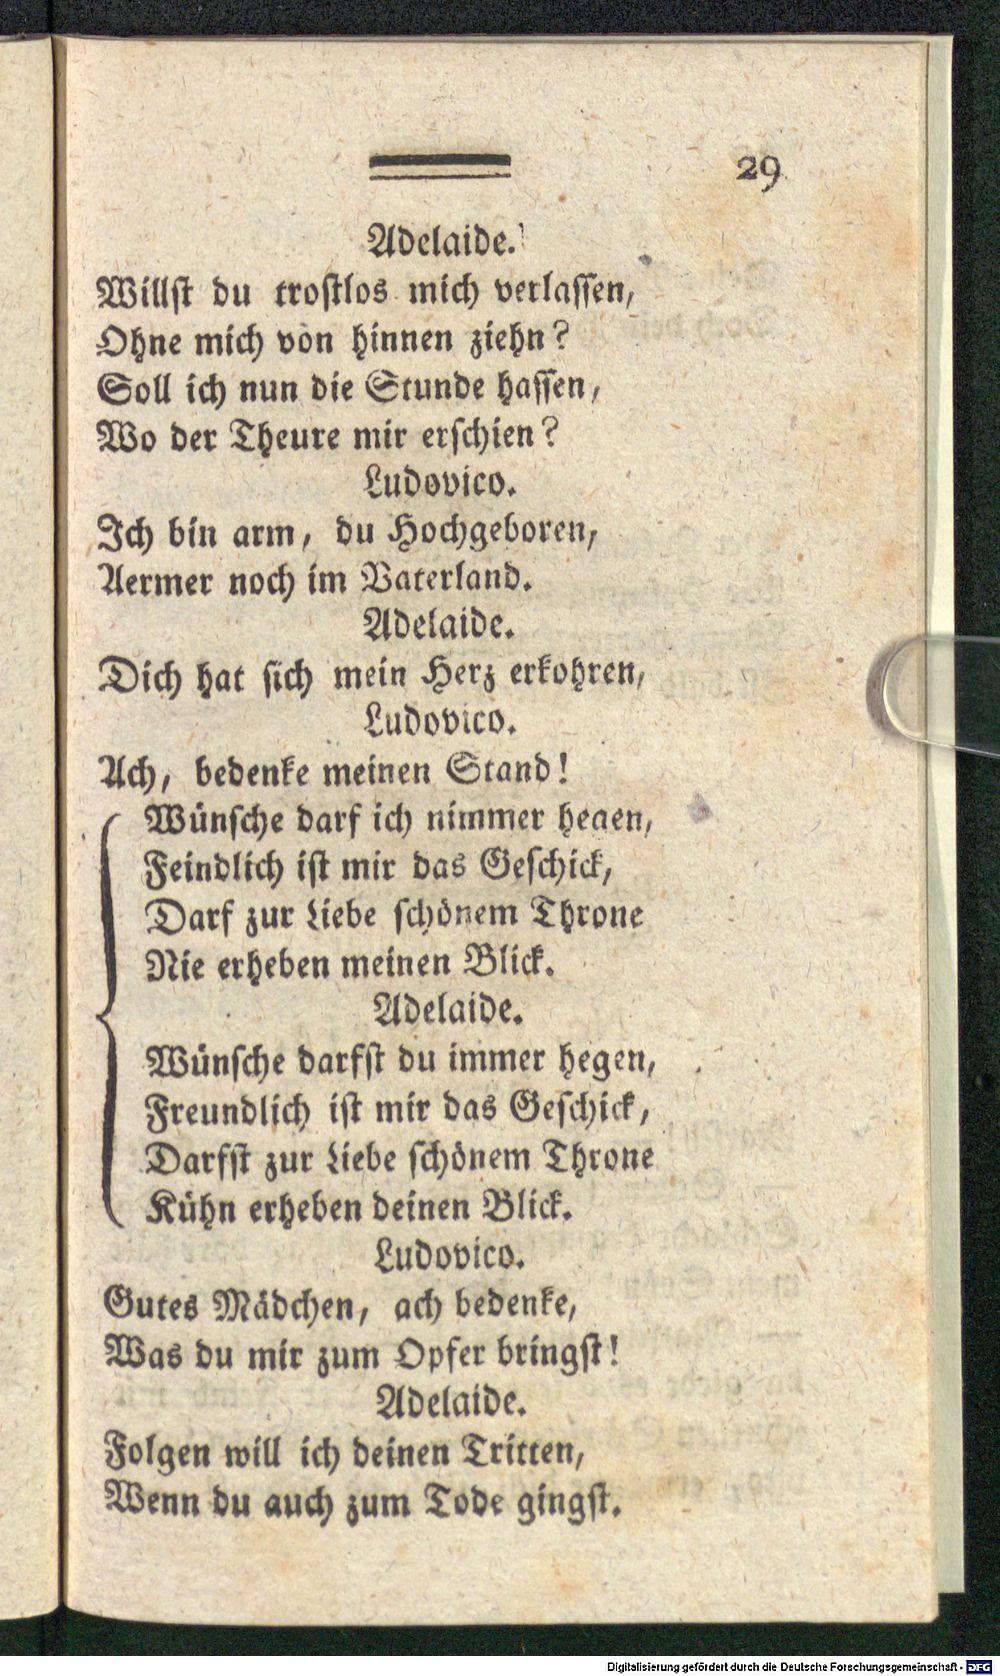 29
Adelaide.
Willst du trostlos mich verlassen,
Ohne mich von hinnen ziehn?
Soll ich nun die Stunde hassen,
Wo der Theure mir erschien?
Ludovico.
Ich bin arm, du Hochgeboren,
Aermer noch im Vaterland.
Adelaide.
Dich hat sich mein Herz erkohren,
Ludovico.
Ach, bedenke meinen Stand!
Wünsche darf ich nimmer hegen,
Feindlich ist mir das Geschick,
Darf zur Liebe schönem Throne
Nie erheben meinen Blick.
Adelaide.
Wünsche darfst du immer hegen,
Freundlich ist mir das Geschick,
Darfst zur Liebe schönem Throne
Kühn erheben deinen Blick.
Ludovico.
Gutes Mädchen, ach bedenke,
Was du mir zum Opfer bringst!
Adelaide.
Folgen will ich deinen Tritten,
Wenn du auch zum Tode gingst.
Digitalisierung gefördert durch die Deutsche Forschungsgemeinschaft - DFG